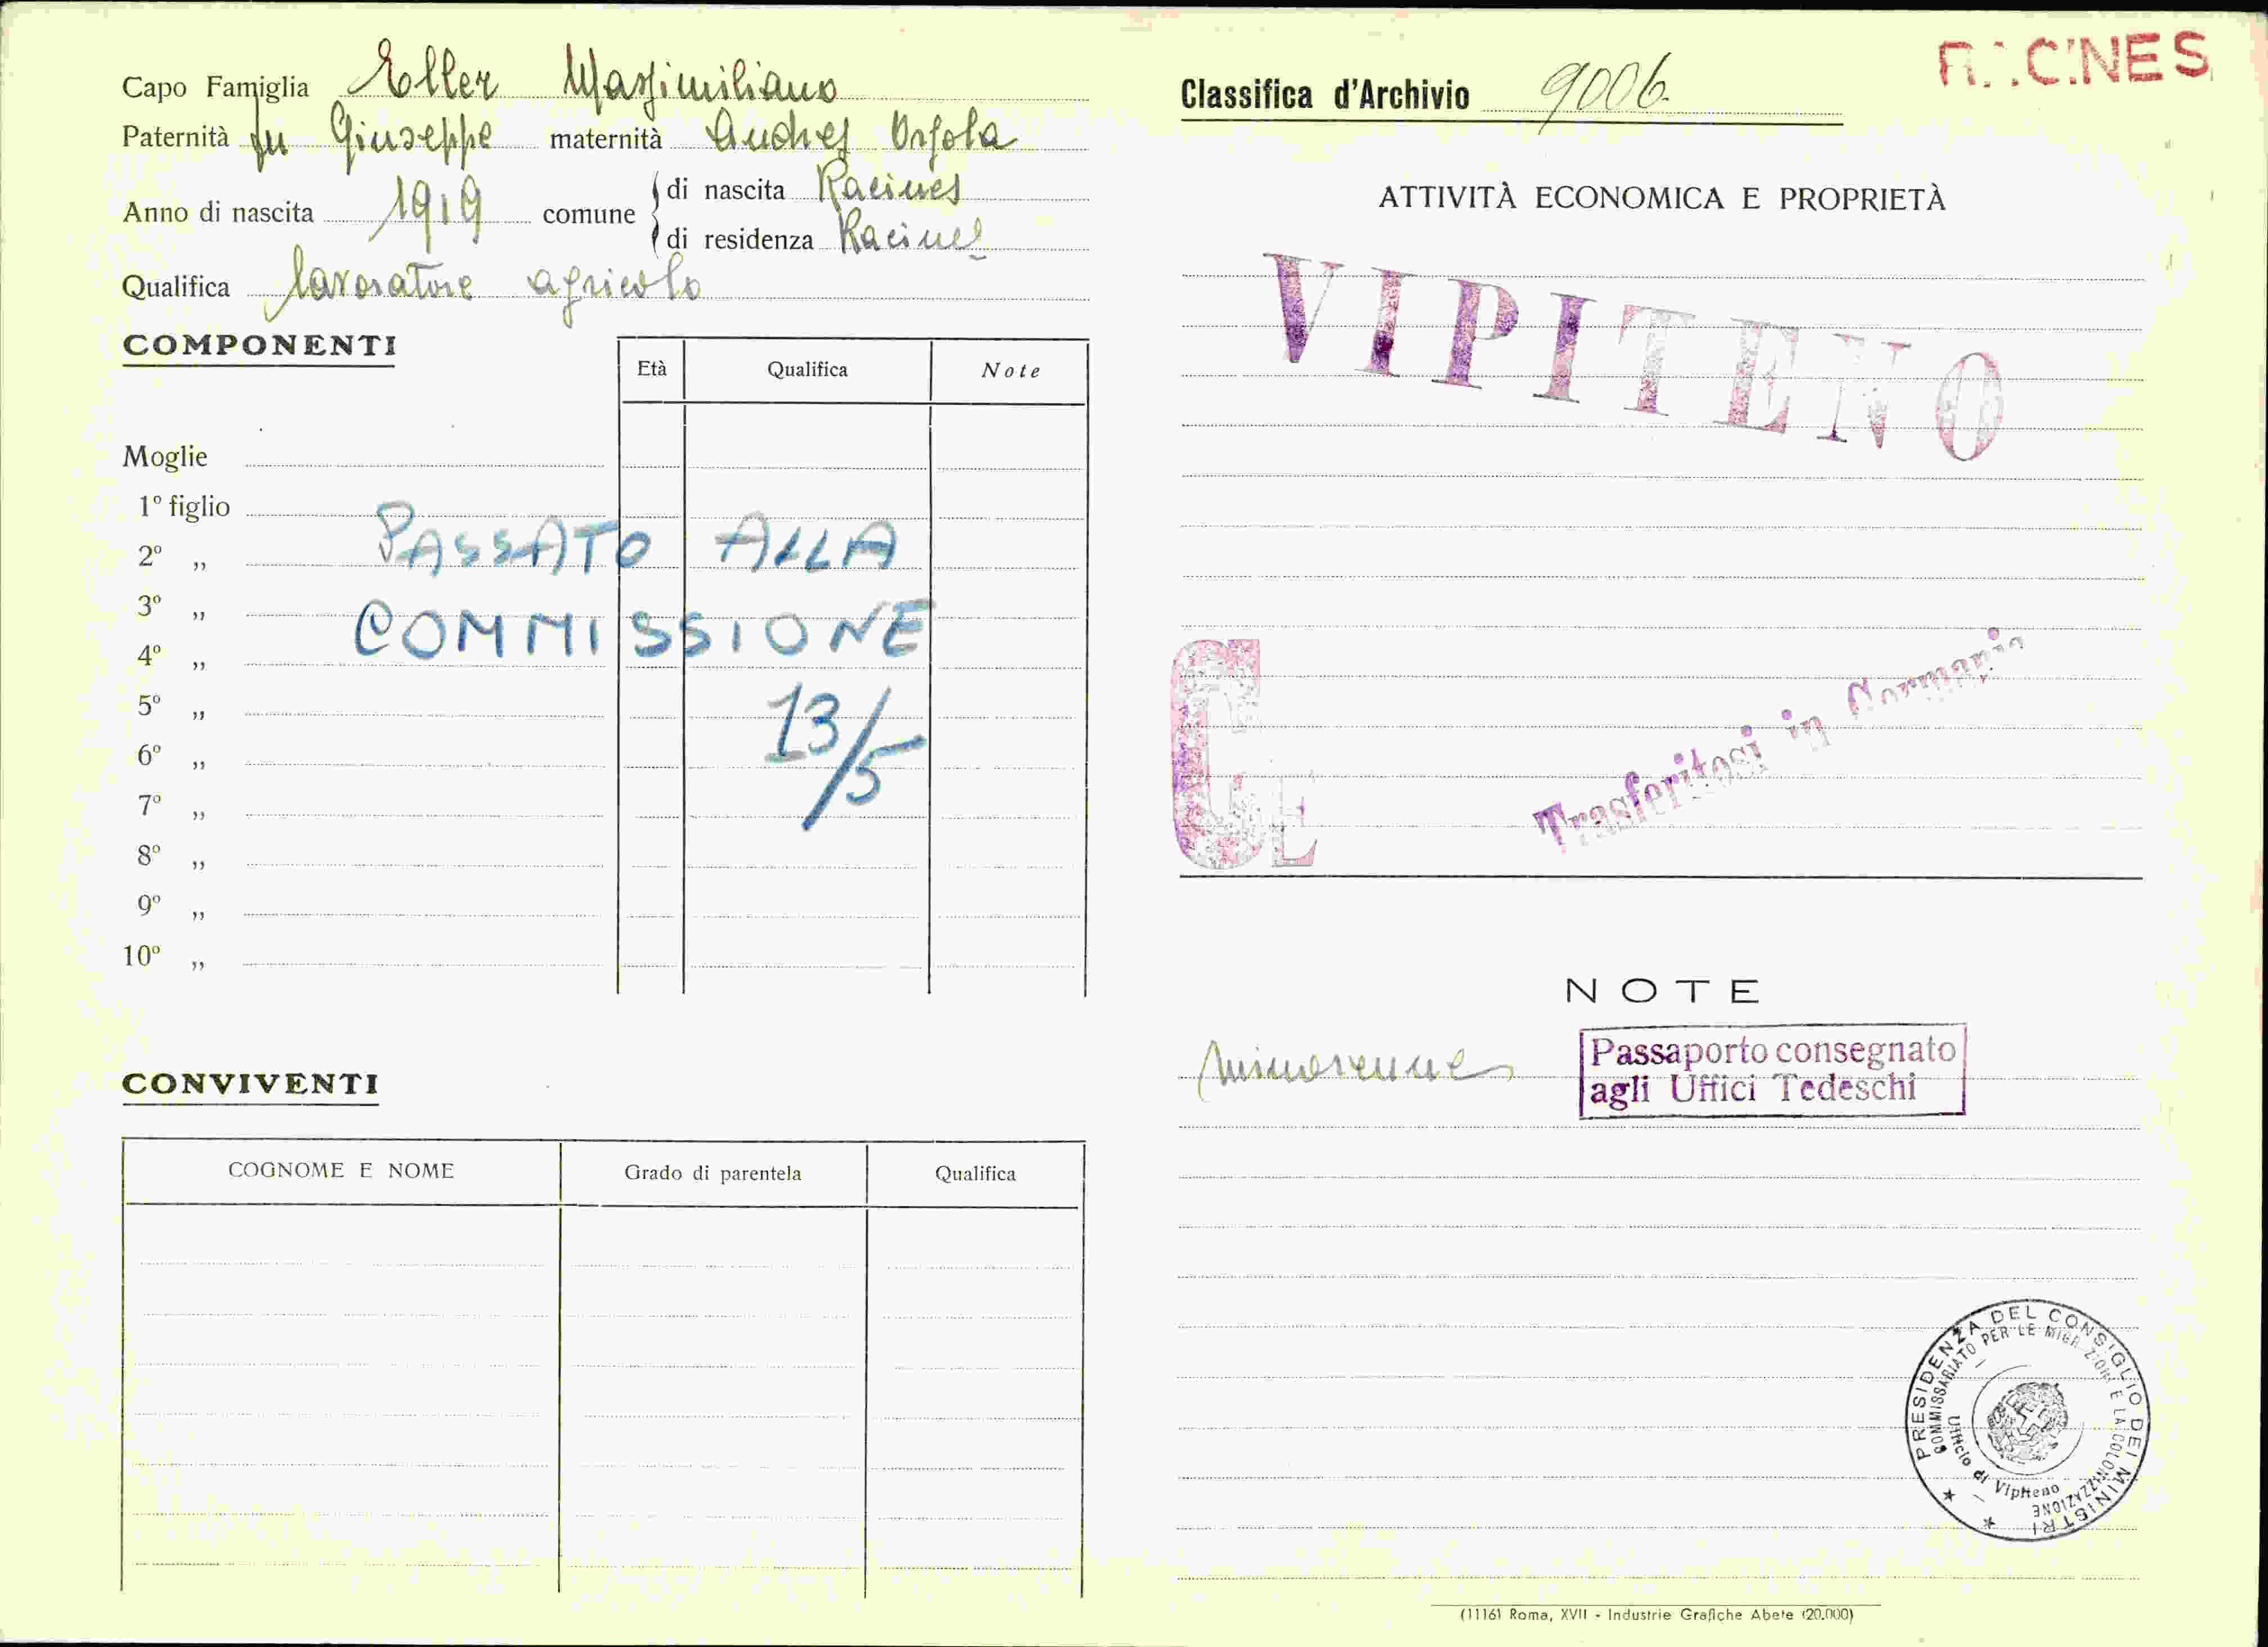 Capo Famiglia Eller Massimiliano
Paternità fu Giuseppe maternità Andres Orsola
Anno di nascita 1919 comune di nascita Racines
di residenza Racines
Qualifica lavoratore agricolo
COMPONENTI
Età Qualifica Note
Moglie
1º figlio
2º „
3º „
4º „
5º „
6º „
7º „
8º „
9º „
10º „
PASSATO ALLA
COMMISSIONE
13/5
CONVIVENTI
COGNOME E NOME Grado di parentela Qualifica
Classifica d'Archivio 9006
RACINES
ATTIVITÀ ECONOMICA E PROPRIETÀ
VIPITENO
Trasferitosi in Germania
NOTE
minorenne
Passaporto consegnato
agli Uffici Tedeschi
PRESIDENZA DEL CONSIGLIO DEI MINISTRI
COMMISSARIATO PER LE MIGRAZIONI E LA COLONIZZAZIONE
Ufficio di Vipiteno
(11161) Roma, XVII - Industrie Grafiche Abete (20.000)